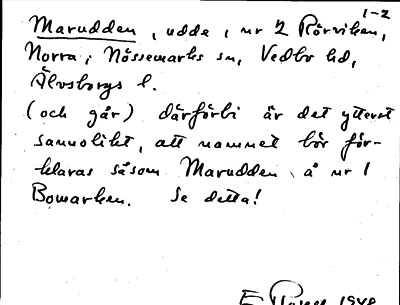 1-2
Marudden, udde, nr 2 Rörviken,
Norra, Nössemarks sn, Vedbo hd,
Älvsborgs l.
(och går) därförbi är det ytterst
sannolikt, att namnet bör för-
klaras såsom Marudden å nr 1
Bowarken. Se detta!
1948